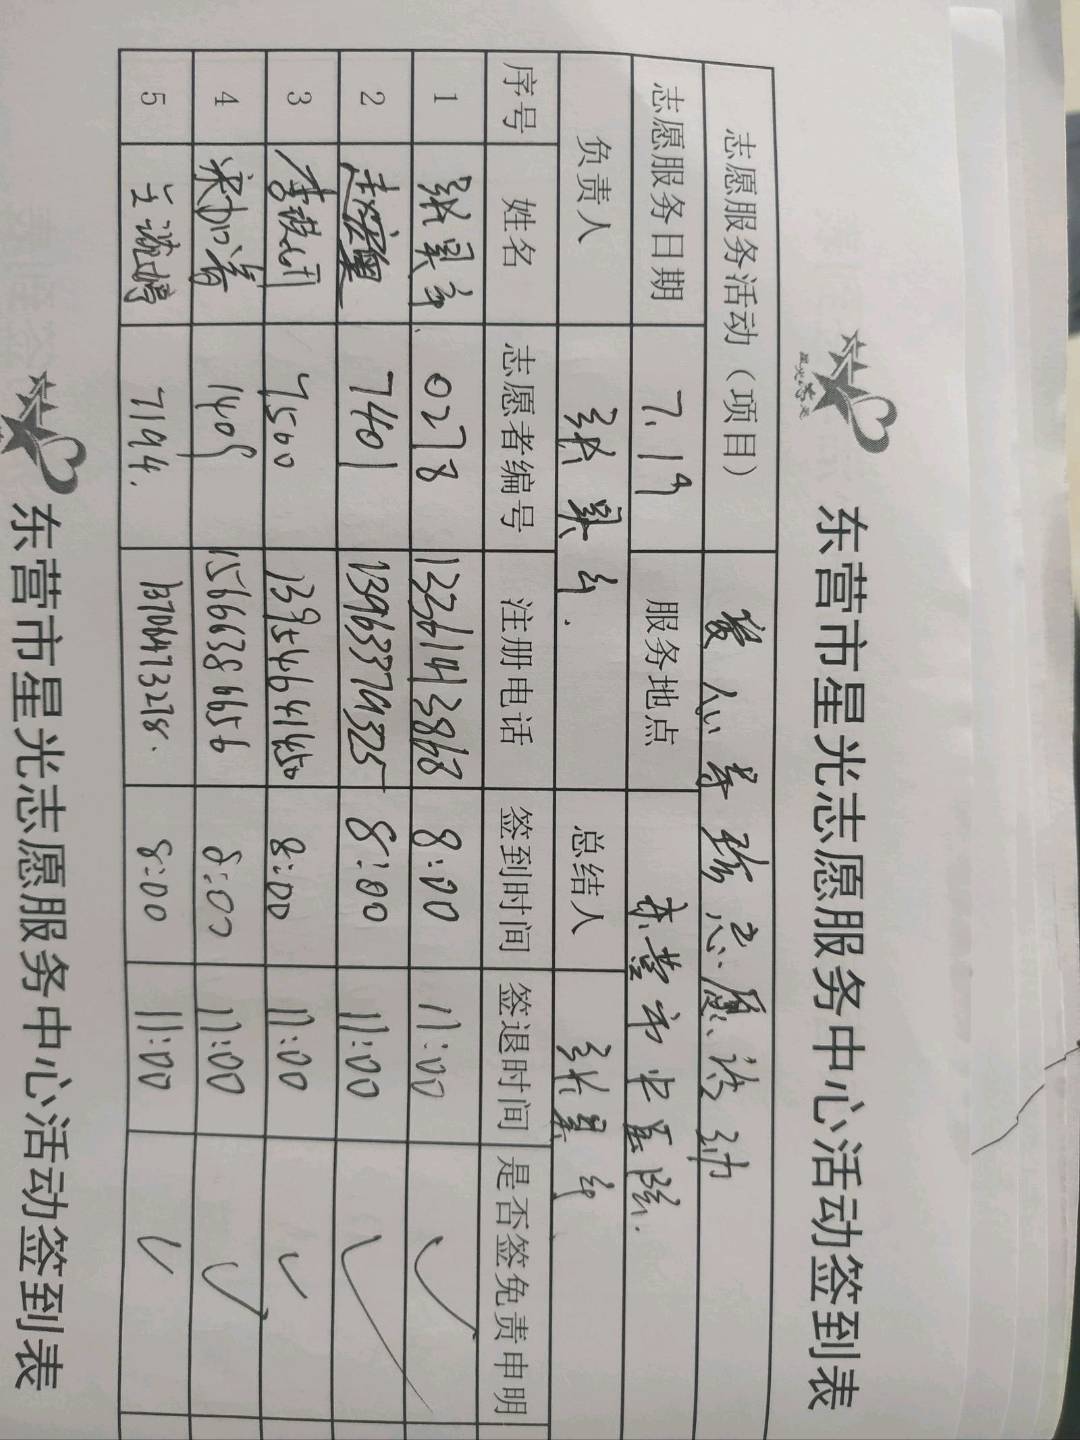 东营市星光志愿服务中心活动签到表
志愿服务活动（项目） 爱心导诊志愿活动
志愿服务日期 7.19 服务地点 东营市中医院.
负责人 张昊 总结人 张昊
序号 姓名 志愿者编号 注册电话 签到时间 签退时间 是否签免责申明
1 张昊 0278 13361413868 8:00 11:00 ✓
2 7401 13963379325 8:00 11:00 ✓
3 7500 13954641450 8:00 11:00 ✓
4 1409 15666386656 8:00 11:00 ✓
5 7194. 13706473278. 8:00 11:00 ✓
东营市星光志愿服务中心活动签到表